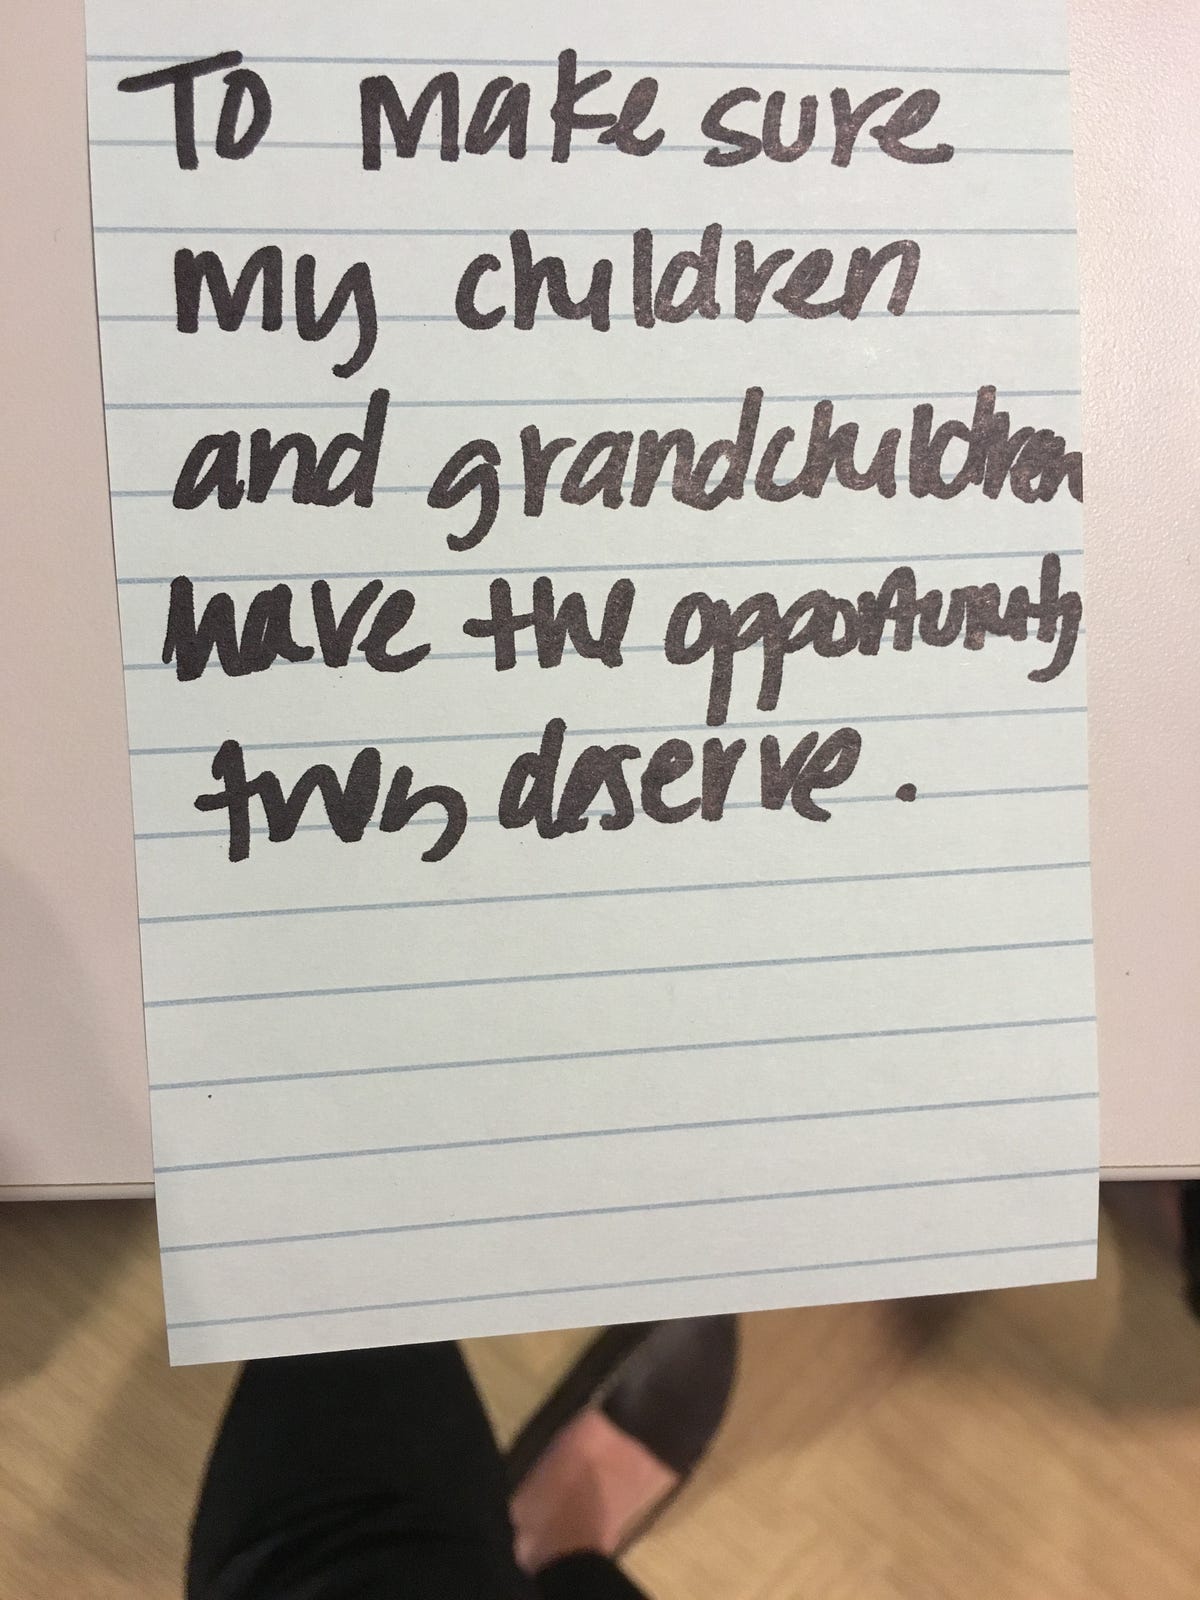 To make sure
my children
and grandchildren
have the opportunity
they deserve.